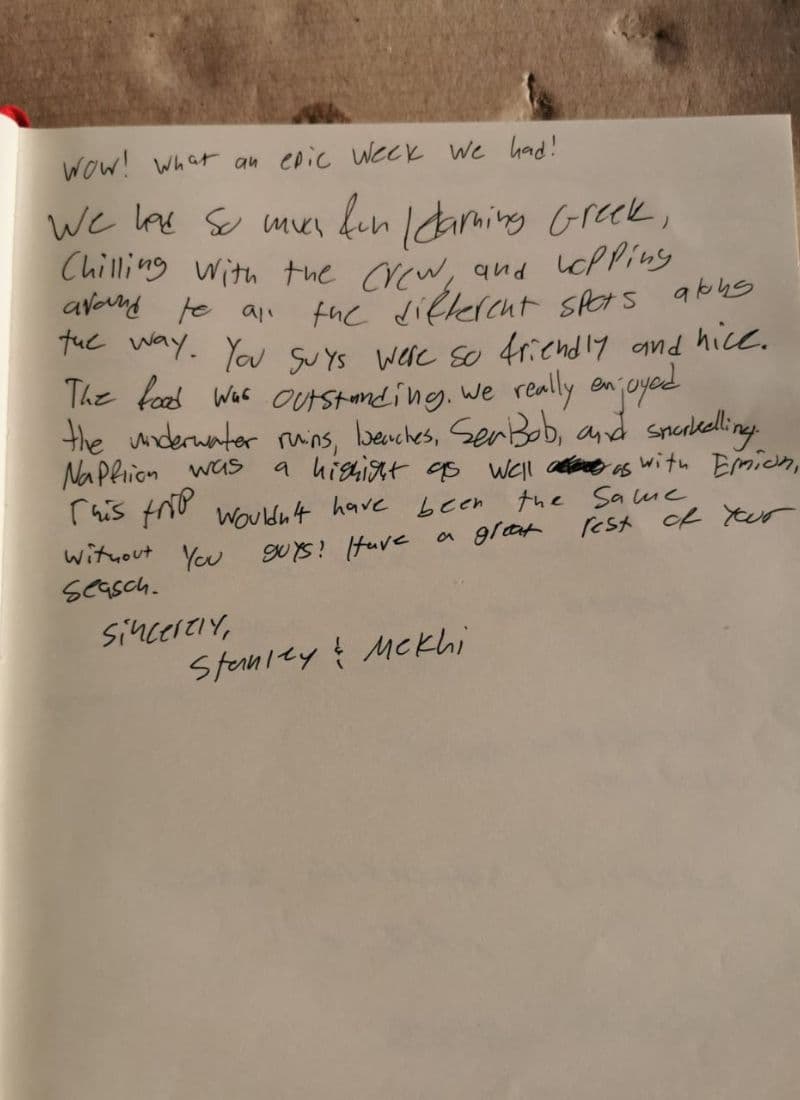 WOW! What an epic week we had!
We had so much fun learning Greek,
Chilling with the crew, and hopping
around to all the different spots along
the way. You guys were so friendly and nice.
The food was outstanding. We really enjoyed
the underwater ruins, beaches, SeaBob, and snorkelling.
Naphlion was a highlight as well as with Ermion,
This trip wouldn't have been the same
without you guys! Have a great rest of your
season.
Sincerely,
Stanley & Mckhi